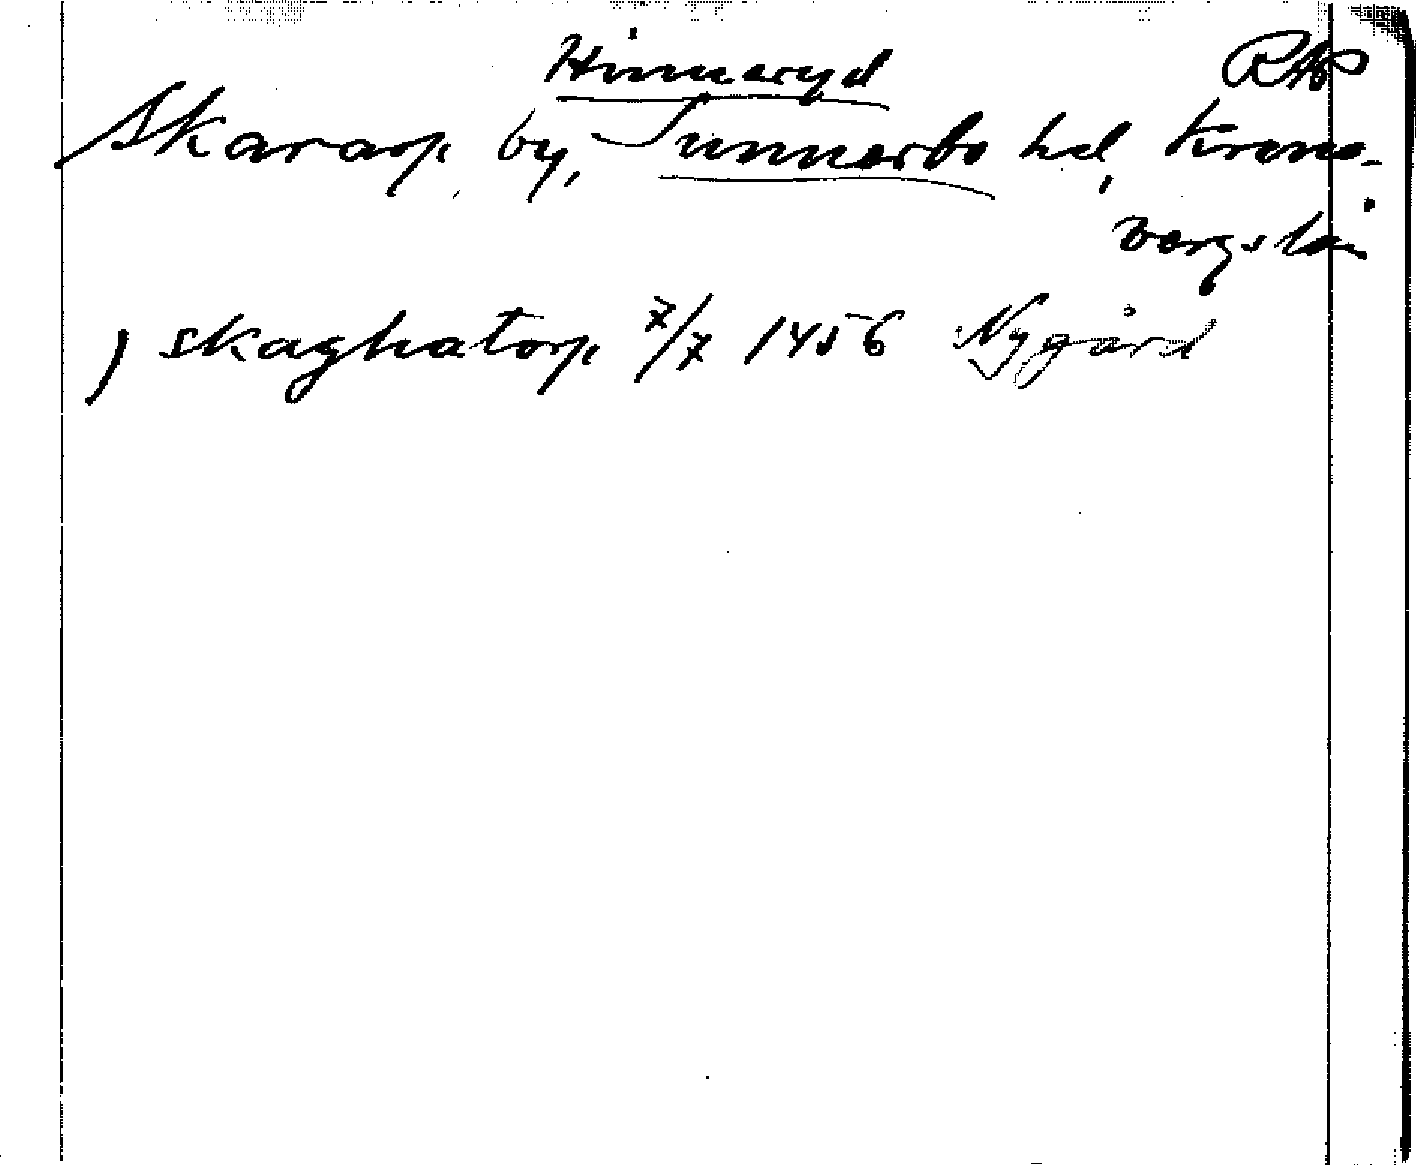 Hinneryd RAP
Skararp by, Sunnerbo hd, Krono-
bergs län
) skaghatorp 7/7 1456 Nygård